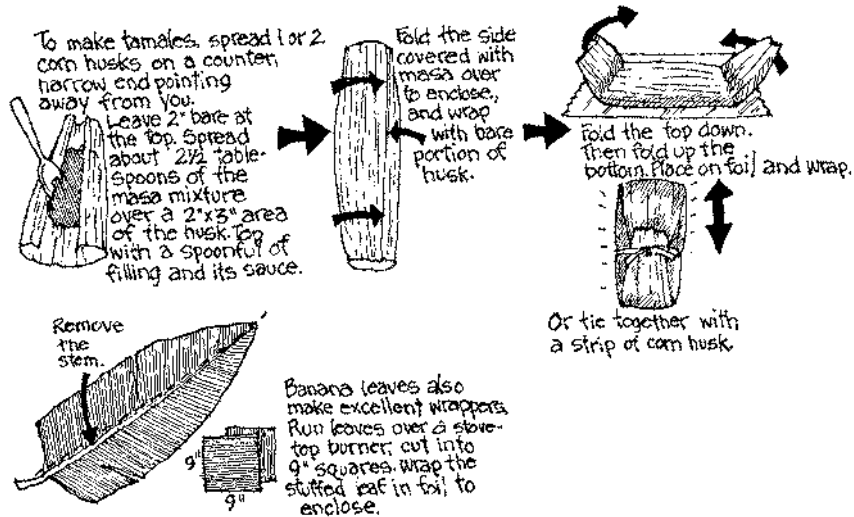 To make tamales, spread 1 or 2
corn husks on a counter,
narrow end pointing
away from you.
Leave 2" bare at
the top. Spread
about 2½ table-
spoons of the
masa mixture
over a 2"x3" area
of the husk. Top
with a spoonful of
filling and its sauce.
Fold the side
covered with
masa over
to enclose,
and wrap
with bare
portion of
husk.
Fold the top down.
Then fold up the
bottom. Place on foil and wrap.
Or tie together with
a strip of corn husk.
Remove
the
stem.
9"
9"
Banana leaves also
make excellent wrappers.
Run leaves over a stove-
top burner, cut into
9" squares. Wrap the
stuffed leaf in foil to
enclose.